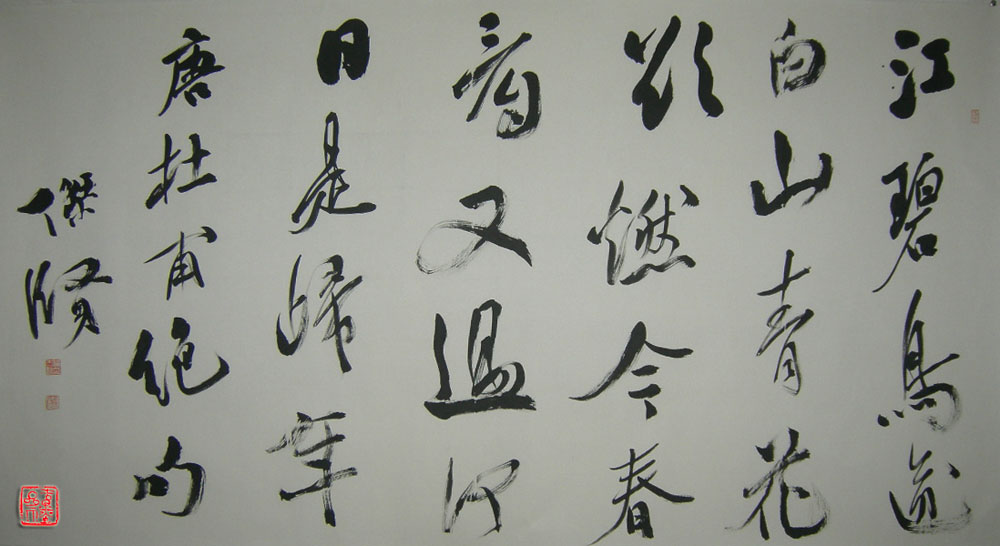 江碧鳥逾
白山青花
欲燃今春
看又過何
日是歸年
唐杜甫絶句
傑賢